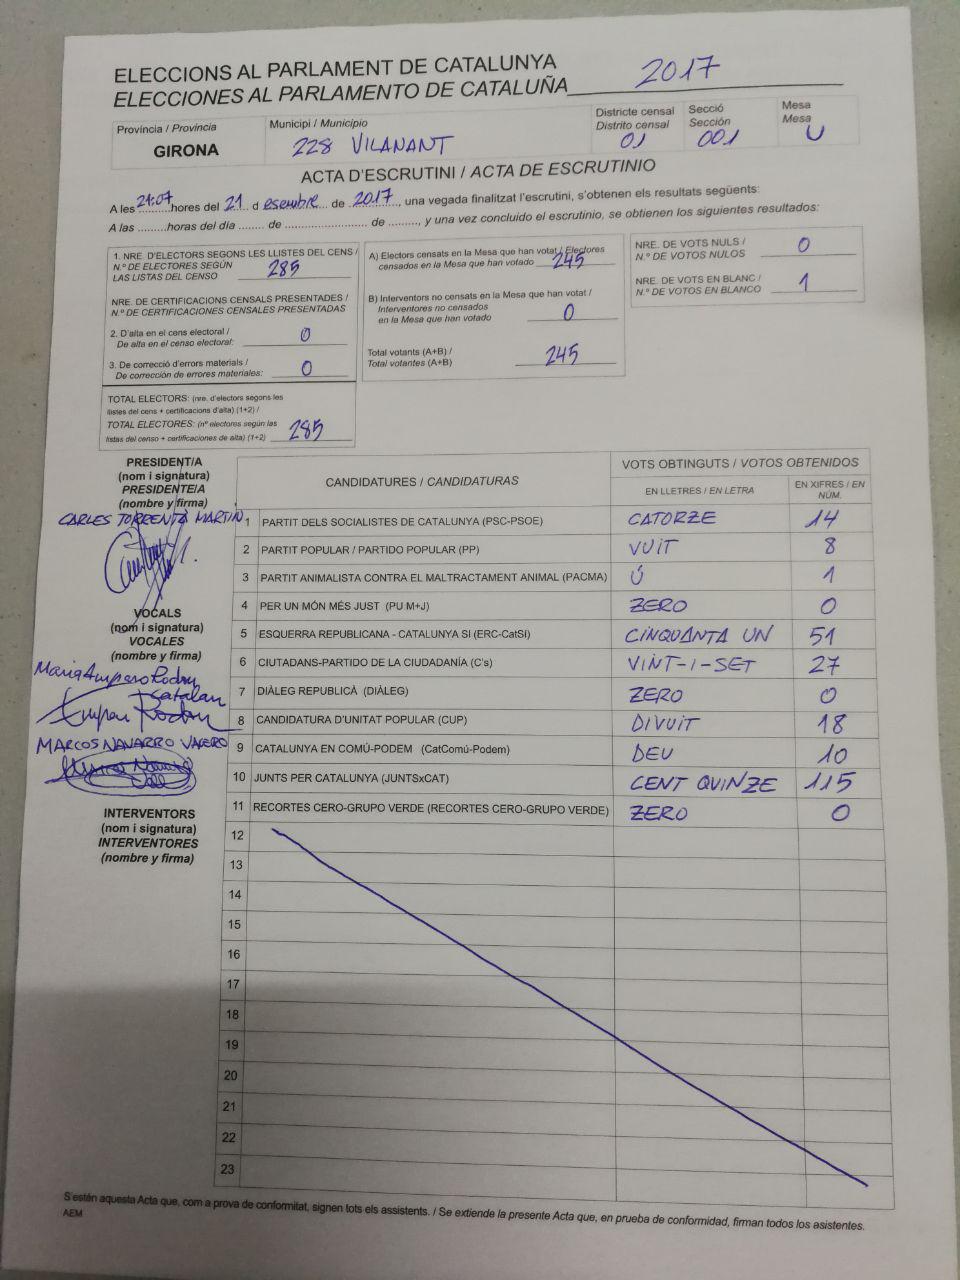 ELECCIONS AL PARLAMENT DE CATALUNYA
ELECCIONES AL PARLAMENTO DE CATALUÑA 2017
Província / Provincia
GIRONA
Municipi / Municipio
228 VILANANT
Districte censal
Distrito censal
01
Secció
Sección
001
Mesa
Mesa
U
ACTA D'ESCRUTINI / ACTA DE ESCRUTINIO
A les 21:07 hores del 21 d esembre de 2017, una vegada finalitzat l'escrutini, s'obtenen els resultats següents:
A las .........horas del día ........ de ........................ de ........, y una vez concluido el escrutinio, se obtienen los siguientes resultados:
1. NRE. D'ELECTORS SEGONS LES LLISTES DEL CENS /
N.º DE ELECTORES SEGÚN
LAS LISTAS DEL CENSO 285
NRE. DE CERTIFICACIONS CENSALS PRESENTADES /
N.º DE CERTIFICACIONES CENSALES PRESENTADAS
2. D'alta en el cens electoral /
De alta en el censo electoral: 0
3. De correcció d'errors materials /
De corrección de errores materiales: 0
TOTAL ELECTORS: (nre. d'electors segons les
llistes del cens + certificacions d'alta) (1+2) /
TOTAL ELECTORES: (nº electores según las
listas del censo + certificaciones de alta) (1+2) 285
A) Electors censats en la Mesa que han votat / Electores
censados en la Mesa que han votado 245
B) Interventors no censats en la Mesa que han votat /
Interventores no censados
en la Mesa que han votado 0
Total votants (A+B) /
Total votantes (A+B) 245
NRE. DE VOTS NULS /
N.º DE VOTOS NULOS 0
NRE. DE VOTS EN BLANC /
N.º DE VOTOS EN BLANCO 1
PRESIDENT/A
(nom i signatura)
PRESIDENTE/A
(nombre y firma)
CARLES TORRENTÀ MARTIN
VOCALS
(nom i signatura)
VOCALES
(nombre y firma)
Maria Amparo Rodru
Catalan
MARCOS NAVARRO VALERO
INTERVENTORS
(nom i signatura)
INTERVENTORES
(nombre y firma)
CANDIDATURES / CANDIDATURAS
VOTS OBTINGUTS / VOTOS OBTENIDOS
EN LLETRES / EN LETRA
EN XIFRES / EN
NÚM.
1 PARTIT DELS SOCIALISTES DE CATALUNYA (PSC-PSOE) CATORZE 14
2 PARTIT POPULAR / PARTIDO POPULAR (PP) VUIT 8
3 PARTIT ANIMALISTA CONTRA EL MALTRACTAMENT ANIMAL (PACMA) Ú 1
4 PER UN MÓN MÉS JUST (PU M+J) ZERO 0
5 ESQUERRA REPUBLICANA - CATALUNYA SÍ (ERC-CatSí) CINQUANTA UN 51
6 CIUTADANS-PARTIDO DE LA CIUDADANÍA (C's) VINT-I-SET 27
7 DIÀLEG REPUBLICÀ (DIÀLEG) ZERO 0
8 CANDIDATURA D'UNITAT POPULAR (CUP) DIVUIT 18
9 CATALUNYA EN COMÚ-PODEM (CatComú-Podem) DEU 10
10 JUNTS PER CATALUNYA (JUNTSxCAT) CENT QUINZE 115
11 RECORTES CERO-GRUPO VERDE (RECORTES CERO-GRUPO VERDE) ZERO 0
12
13
14
15
16
17
18
19
20
21
22
23
S'estén aquesta Acta que, com a prova de conformitat, signen tots els assistents. / Se extiende la presente Acta que, en prueba de conformidad, firman todos los asistentes.
AEM